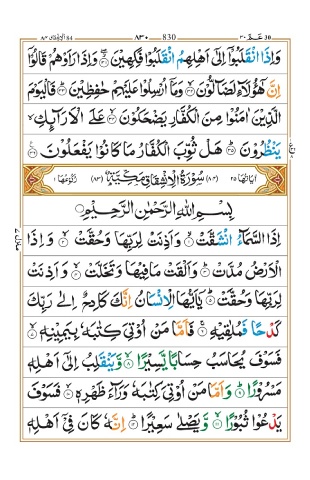 عمّ ٣٠ ٨٣٠ 830 الانشقاق ٨٤
وَاِذَا انْقَلَبُوْۤا اِلٰۤى اَهْلِهِمُ انْقَلَبُوْا فَكِهِيْنَ ۝٣١ وَاِذَا رَاَوْهُمْ قَالُوْۤا
اِنَّ هٰۤؤُلَآءِ لَضَآلُّوْنَ ۝٣٢ وَمَاۤ اُرْسِلُوْا عَلَيْهِمْ حٰفِظِيْنَ ۝٣٣ فَالْيَوْمَ
الَّذِيْنَ اٰمَنُوْا مِنَ الْكُفَّارِ يَضْحَكُوْنَ ۝٣٤ عَلَى الْاَرَآىِٕكِ ۙ
يَنْظُرُوْنَ ۝٣٥ هَلْ ثُوِّبَ الْكُفَّارُ مَا كَانُوْا يَفْعَلُوْنَ ۝٣٦
اٰيَاتُهَا ٢٥ (٨٤) سُوْرَةُ الْاِنْشِقَاقِ مَكِّيَّةٌ (٨٣) رُكُوْعُهَا ١
بِسْمِ اللّٰهِ الرَّحْمٰنِ الرَّحِيْمِ
اِذَا السَّمَآءُ انْشَقَّتْ ۝١ وَاَذِنَتْ لِرَبِّهَا وَحُقَّتْ ۝٢ وَاِذَا
الْاَرْضُ مُدَّتْ ۝٣ وَاَلْقَتْ مَا فِيْهَا وَتَخَلَّتْ ۝٤ وَاَذِنَتْ
لِرَبِّهَا وَحُقَّتْ ۝٥ يٰۤاَيُّهَا الْاِنْسَانُ اِنَّكَ كَادِحٌ اِلٰى رَبِّكَ
كَدْحًا فَمُلٰقِيْهِ ۝٦ فَاَمَّا مَنْ اُوْتِيَ كِتٰبَهٗ بِيَمِيْنِهٖ ۝٧
فَسَوْفَ يُحَاسَبُ حِسَابًا يَّسِيْرًا ۝٨ وَّيَنْقَلِبُ اِلٰۤى اَهْلِهٖ
مَسْرُوْرًا ۝٩ وَاَمَّا مَنْ اُوْتِيَ كِتٰبَهٗ وَرَآءَ ظَهْرِهٖ ۝١٠ فَسَوْفَ
يَدْعُوْا ثُبُوْرًا ۝١١ وَّيَصْلٰى سَعِيْرًا ۝١٢ اِنَّهٗ كَانَ فِيْۤ اَهْلِهٖ